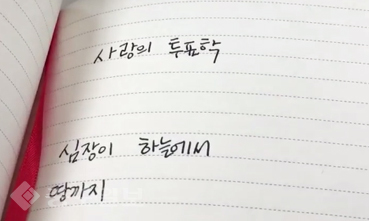 사랑의 투표학
심장이 하늘에서
땅까지